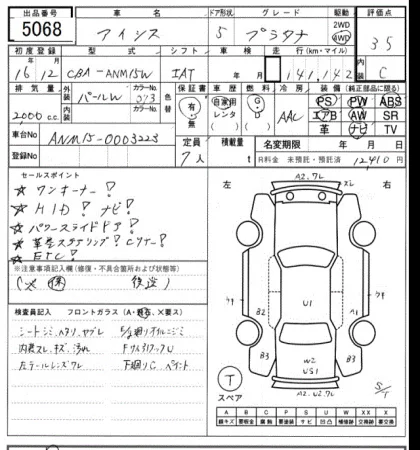 出品番号 車名 ドア形状 グレード 駆動 評価点
5068 アイシス 5 プラタナ 2WD 4WD 3.5
初度登録 型式 シフト 車検 走行(km・マイル) 内装
16 12 CBA-ANM15W IAT 141,142 C
排気量 外装 パールW カラーNo. 色替 保証書 車歴 燃料 冷房 装備(純正部品に限る)
2000 cc. 内装 カラーNo. 有 無 自家用 レンタ G D AAC PS PW ABS
エアB AW SR
革 ナビ TV
車台No ANM15-0003223 定員 積載量 名変期限 年 月 日
登録No 7人 t R料金 未預託・預託済 12410円
セールスポイント
☆ ワンオーナー!
☆ HID! ナビ!
☆ パワースライドドア!
☆ 革巻ステアリング!
☆ ETC!
※注意事項記入欄(修復・不具合箇所および状態)
(保 後送)
検査員記入 フロントガラス(A・飛石・X要ス)
シートシミ、ヤブレ
内装スレ キズ 汚れ
左テールレンズワレ
下廻りC ペイント
左 右
A2.
キサ キサ
U1
B2 A1
B3 B3
W2
US1
T
スペア
A2.U2.
S/T
A B C P S U W XX X
線キズ 要板金 腐蝕 要塗装 サビ 凹 補修跡 交換跡 要交換